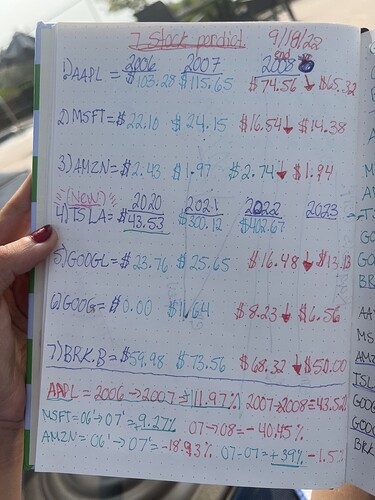 7 stock pendict 9/18/22
2006 2007 2008 end
1) AAPL = $103.28 $115.65 $74.56 ↓ $65.32
2) MSFT = $22.10 $24.15 $16.54 ↓ $14.38
3) AMZN = $2.43 $1.97 $2.74 ↓ $1.94
(New) 2020 2021 2022 2023
4) TSLA = $43.53 $300.12 $402.67
5) GOOGL = $23.76 $25.65 $16.48 ↓ $13.13
6) GOOG = $0.00 $11.64 $8.23 ↓ $6.56
7) BRK.B = $59.98 $73.56 $68.32 ↓ $50.00
AAPL = 2006→2007 = 11.97% 2007→2008 = 43.52
MSFT = 06'→07' = 9.27% 07→08 = -40.45%
AMZN = 06'→07' = -18.93% 07-07 = +39% -1.5%
AA
MS
AM
TSL
GOO
GO
BR
AAP
MS
AMZ
TSL
GOO
GOO
BRK